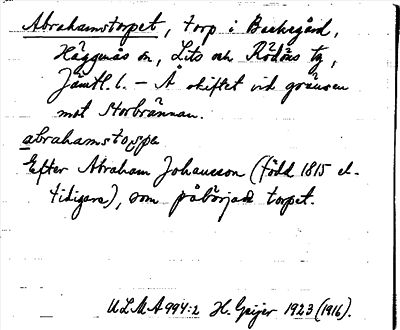 Abrahamstorpet, torp i Backegård,
Häggenås sn, Lits och Rödöns tg,
Jämtl. l. – Å skiftet vid gränsen
mot Storbrännan.
abrahamstoṛpe
Efter Abraham Johansson (född 1815 el.
tidigare), som påbörjade torpet.
ULMA 994:2 H. Geijer 1923 (1916).